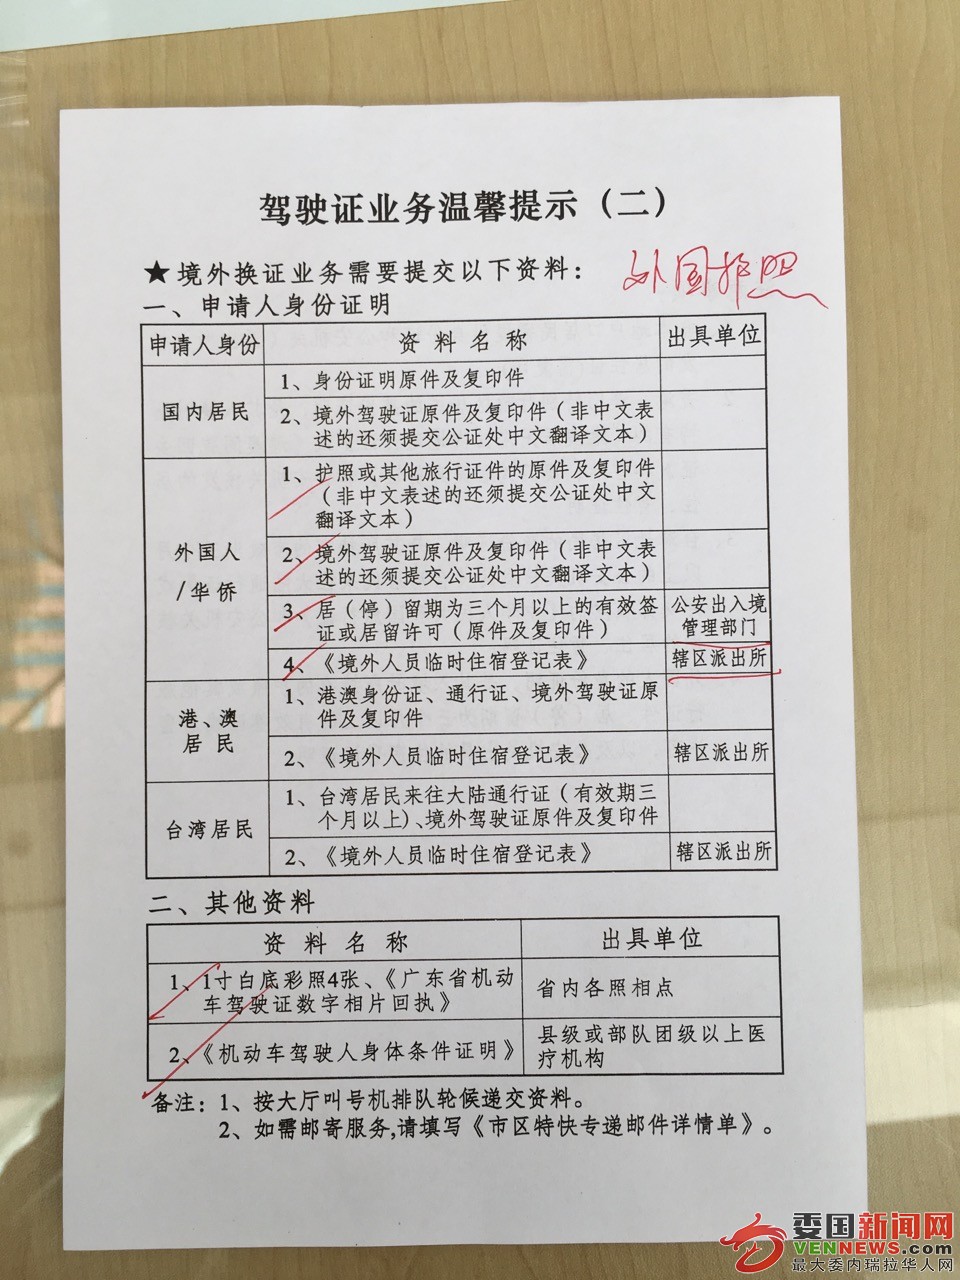 驾驶证业务温馨提示（二）
★境外换证业务需要提交以下资料：
外国护照
一、申请人身份证明
申请人身份 资料名称 出具单位
国内居民
1、身份证明原件及复印件
2、境外驾驶证原件及复印件（非中文表
述的还须提交公证处中文翻译文本）
外国人
/华侨
1、护照或其他旅行证件的原件及复印件
（非中文表述的还须提交公证处中文
翻译文本）
2、境外驾驶证原件及复印件（非中文表
述的还须提交公证处中文翻译文本）
3、居（停）留期为三个月以上的有效签
证或居留许可（原件及复印件）
公安出入境
管理部门
4、《境外人员临时住宿登记表》 辖区派出所
港、澳
居民
1、港澳身份证、通行证、境外驾驶证原
件及复印件
2、《境外人员临时住宿登记表》 辖区派出所
台湾居民
1、台湾居民来往大陆通行证（有效期三
个月以上）、境外驾驶证原件及复印件
2、《境外人员临时住宿登记表》 辖区派出所
二、其他资料
资料名称 出具单位
1、1寸白底彩照4张、《广东省机动
车驾驶证数字相片回执》
省内各照相点
2、《机动车驾驶人身体条件证明》
县级或部队团级以上医
疗机构
备注：1、按大厅叫号机排队轮候递交资料。
2、如需邮寄服务,请填写《市区特快专递邮件详情单》。
委国新闻网
VENNEWS.com
最大委内瑞拉华人网